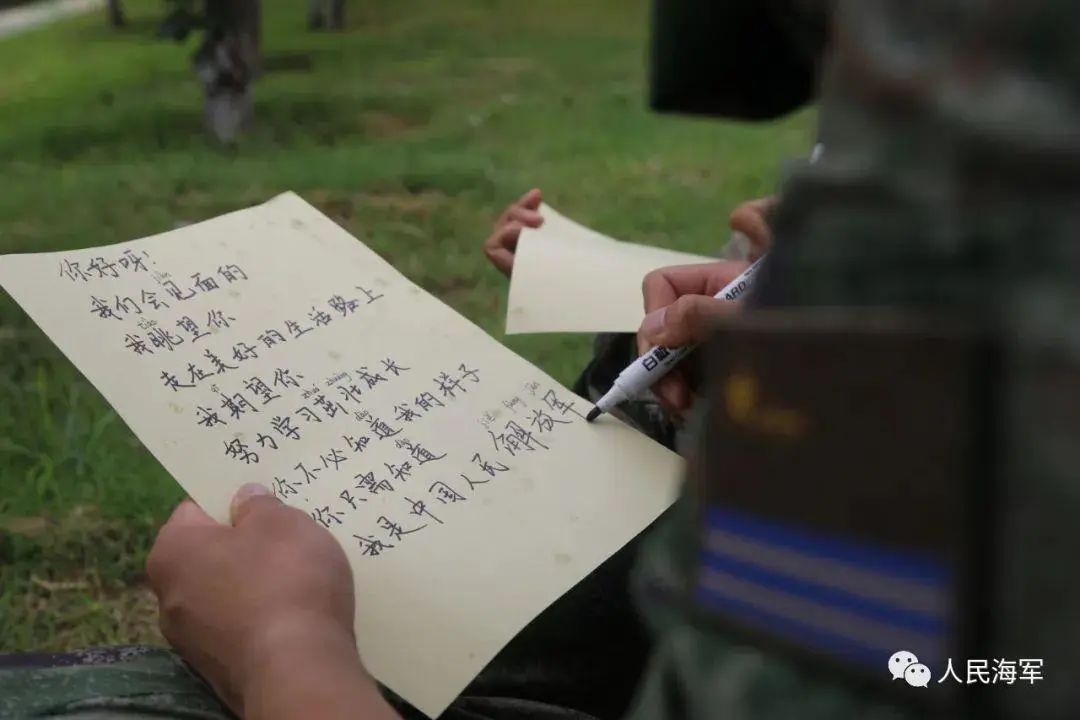 你好呀!
我们会见面的
我眺望你
走在美好的生活路上
我期望你
努力学习茁壮成长
你不必知道我的样子
你只需知道
我是中国人民解放军
人民海军